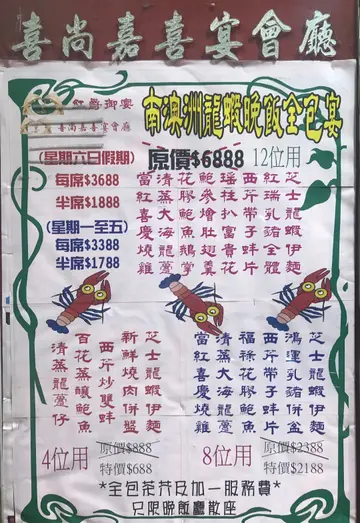 喜尚嘉喜宴會廳
紅爵御宴
喜尚嘉喜宴會廳
南澳洲龍蝦晚飯全包宴
(星期六日假期)
每席$3688
半席$1888
(星期一至五)
每席$3388
半席$1788
原價$6888 12位用
芝士龍蝦伊麵
紅瑞乳豬全體
西芹帶子蚌片
瑤柱扒富貴花
鮑參燴肚翅羹
花膠鮑魚鵝掌
清蒸大海龍躉
當紅喜慶燒雞
芝士龍蝦伊麵
新鮮燒肉併盤
西芹炒雙蚌
百花蒸釀鮑魚
清蒸龍躉仔
4位用
原價$888
特價$688
芝士龍蝦伊麵
鴻運乳豬併盆
西芹帶子蚌片
福祿花膠鮑魚
清蒸大海龍躉
當紅喜慶燒雞
8位用
原價$2388
特價$2188
*全包茶芥及加一服務費*
只限晚飯廳散座